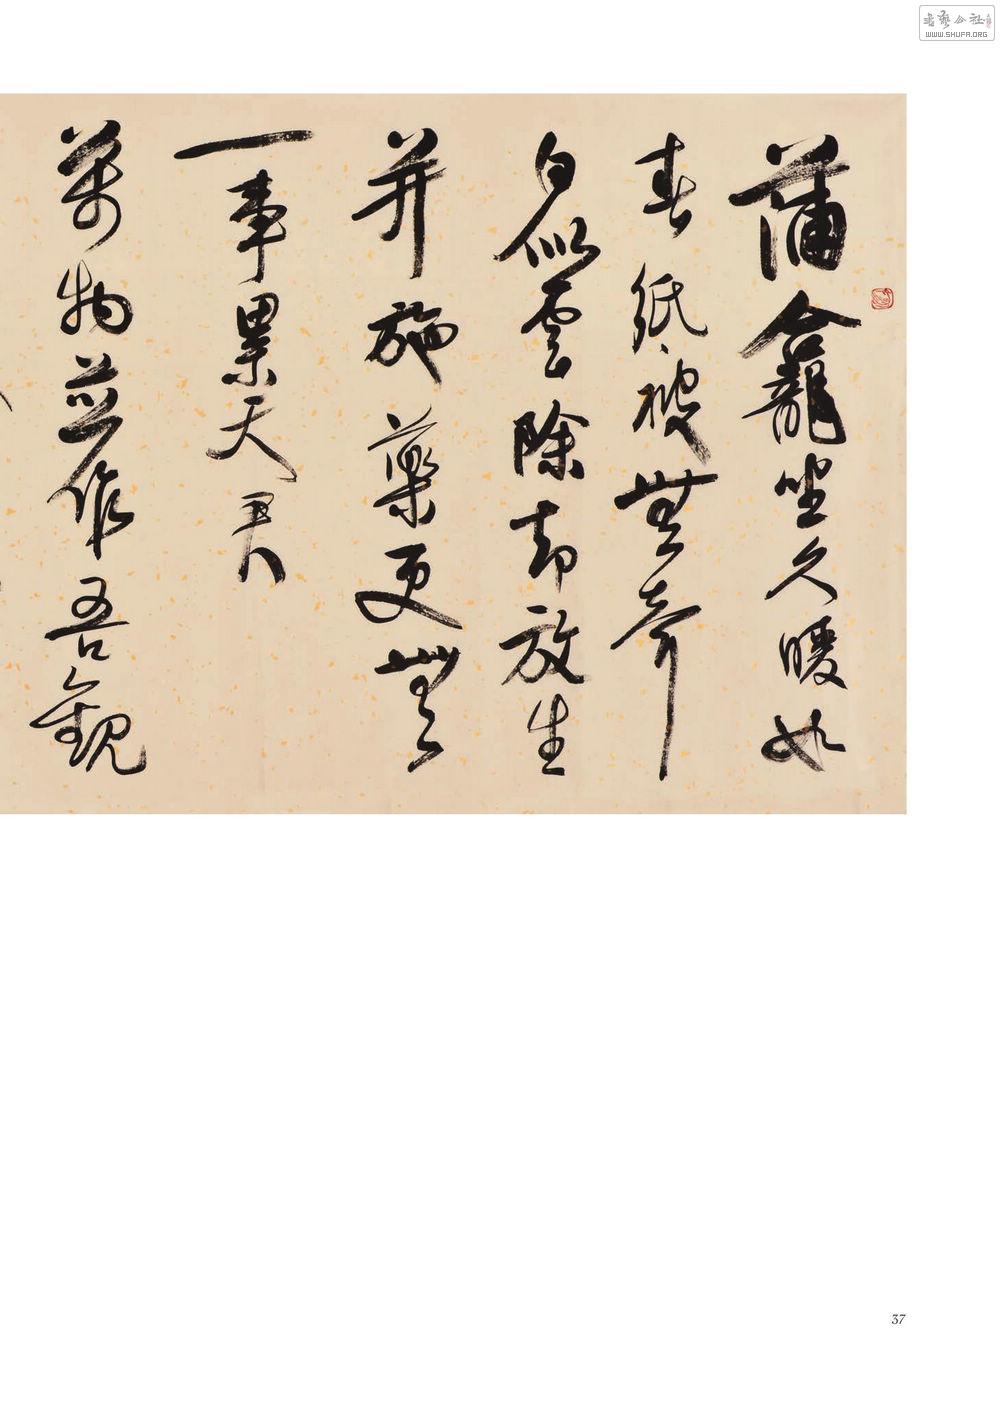 蒲龕坐久暖如
春紙被無聲
白似雲除却放生
并施藥更無
一事累天君
萬物並作吾觀
37
書藝公社
WWW.SHUFA.ORG